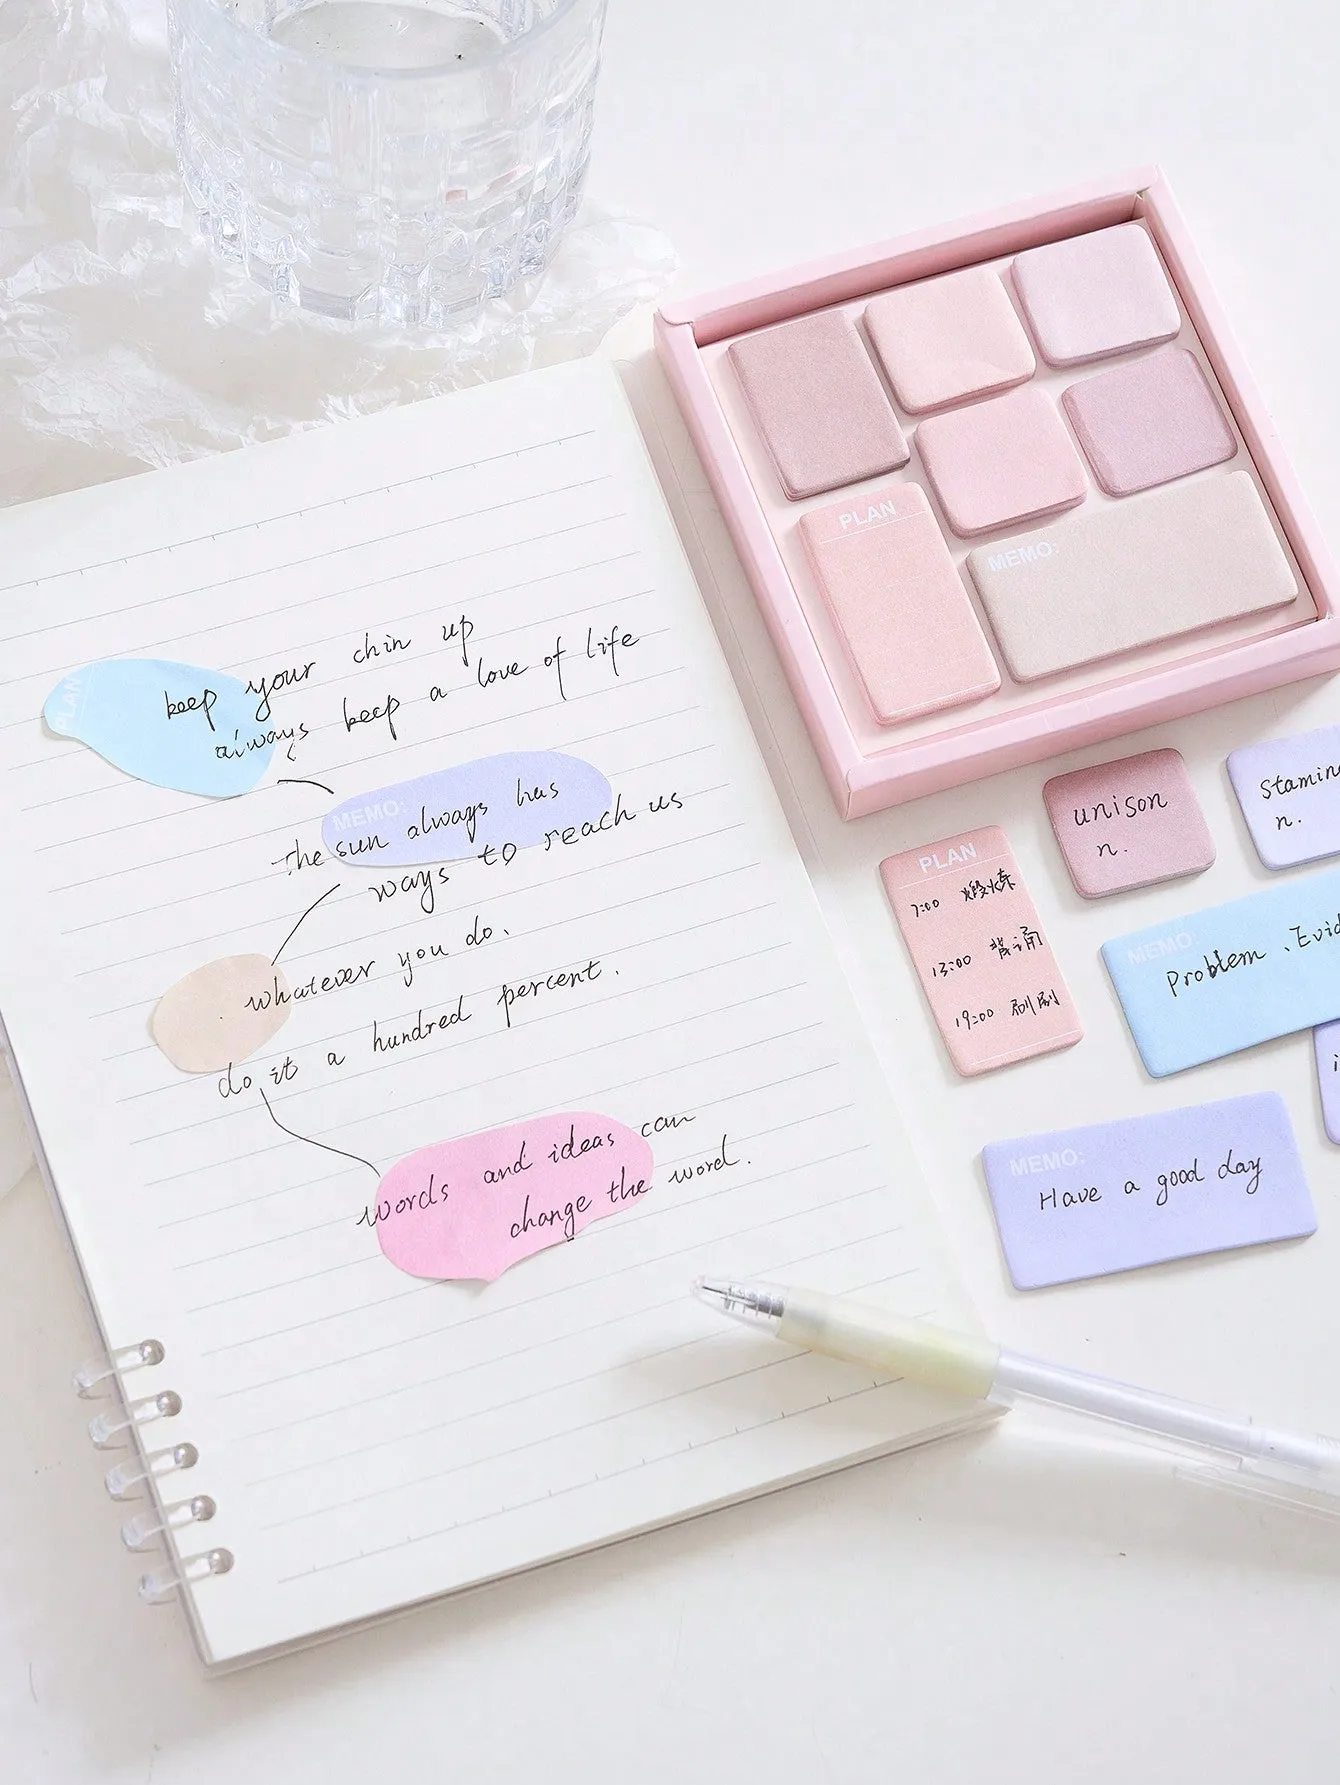 PLAN
keep your chin up
always keep a love of life
MEMO:
the sun always has
ways to reach us
whatever you do.
do it a hundred percent.
words and ideas can
change the word.
PLAN
MEMO:
unison
n.
n.
PLAN
7:00 煅炼
13:00 背诵
19:00 刷刷
MEMO:
Problem
MEMO:
Have a good day